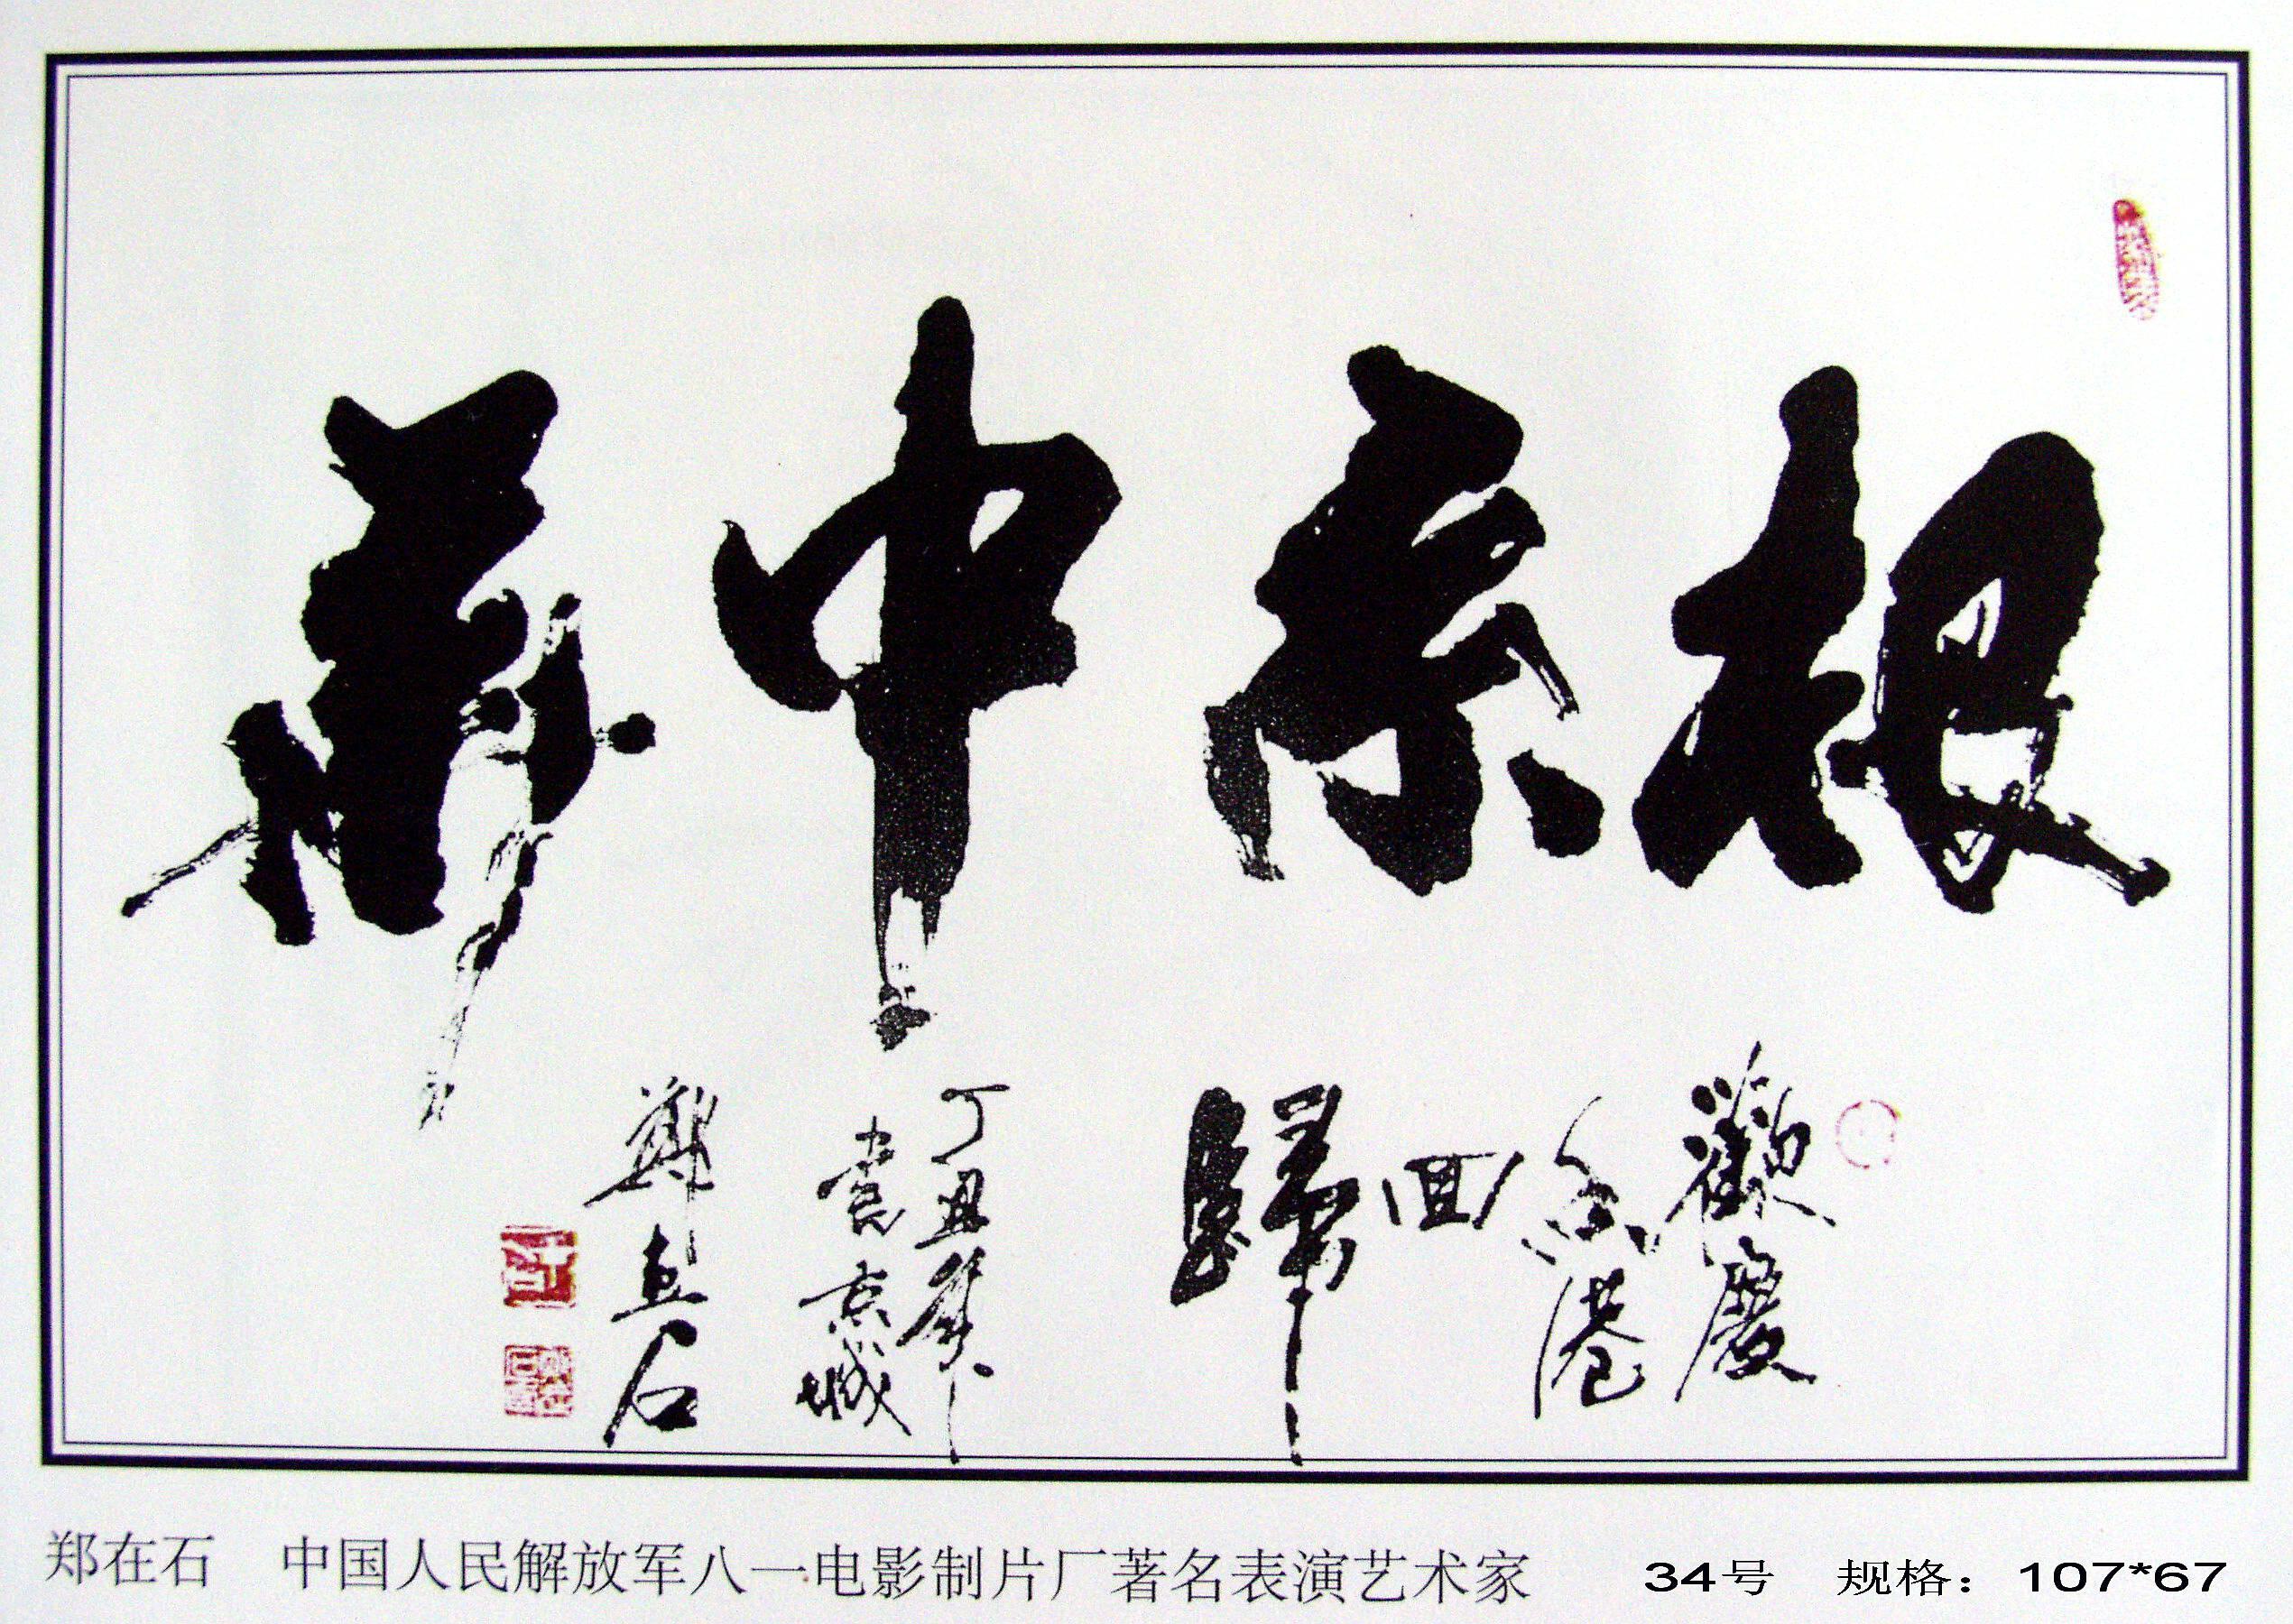 根系中華
歡慶
香港
回
歸
丁丑年
書京城
鄭在石
郑在石 中国人民解放军八一电影制片厂著名表演艺术家 34号 规格：107*67